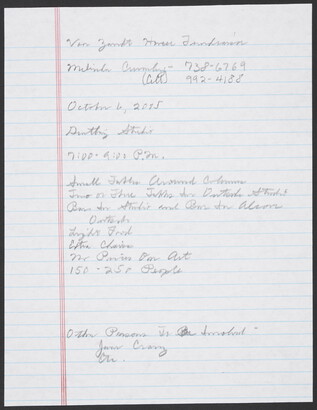 Van Zandt House Fundraiser
Melinda - 738-6769
(Cell) 992-4188
October 6, 2005
Studio
7:00 - 9:00 P.M.
Small Tables Around Column
Two or Three Tables In Outside Studio
Bar In Studio and Bar In Alcove
Outside
Light Food
Extra Chairs
No Prices On Art
150 - 250 People
Other Persons To Be Involved -
Jan
Etc.